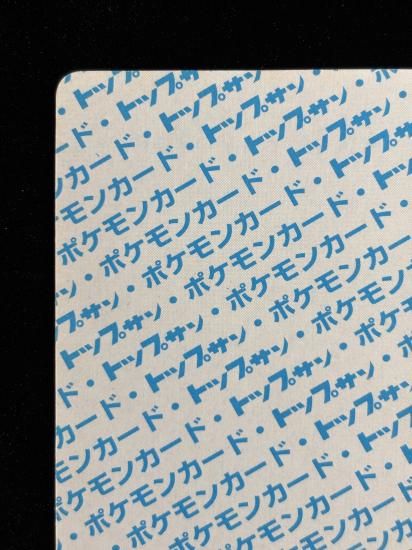 ・トップ
ド・トップサ
カード・トップサン・
モンカード・トップサン・ポ
ケモンカード・トップサン・
ポケモンカード・トップサン
・ポケモンカード・トップサン
ン・ポケモンカード・トップ
プサン・ポケモンカード・
トップサン・ポケモンカード
・トップサン・ポケモンカ
ド・トップサン・ポケモン
カード・トップサン・ポケ
モンカード・トップサン・
ケモンカード・トップサン
ポケモンカード・トップ
・ポケモンカード・
ポケモンカード